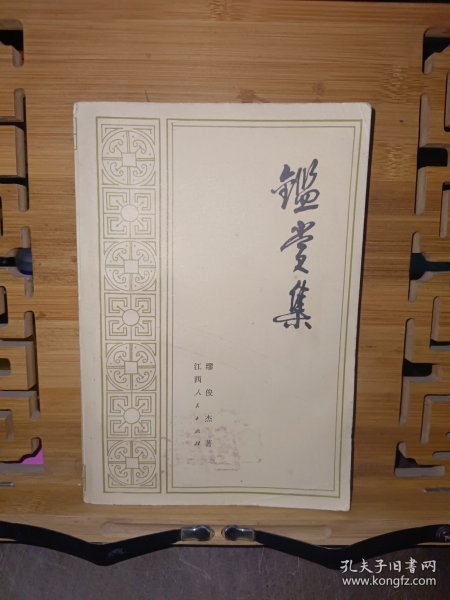 鑑赏集
缪俊杰著
江西人民出版社
孔夫子旧书网
www.kongfz.com